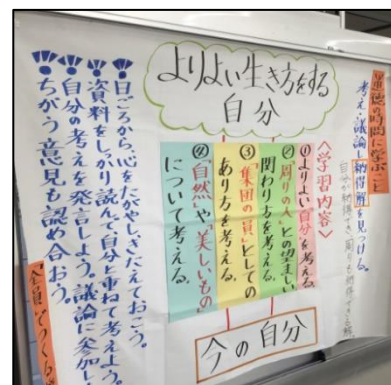 道徳の時間に学ぶこと
考え・議論し納得解を見つける。
自分が納得でき、周りも納得できる解
よりよい生き方をする
自分
〈学習内容〉
①よりよい「自分」を
考える。
②「周りの人」との望ましい
関わり方を考える。
③「集団の一員」としての
あり方を考える。
④「自然」や「美しいもの」
について考える。
今の自分
日ごろから、心をたがやしきたえておこう。
資料をしっかり読んで、自分と重ねて考えよう。
自分の考えを発言しよう。議論に参加し
ちがう意見も認め合おう。
全員でつくる